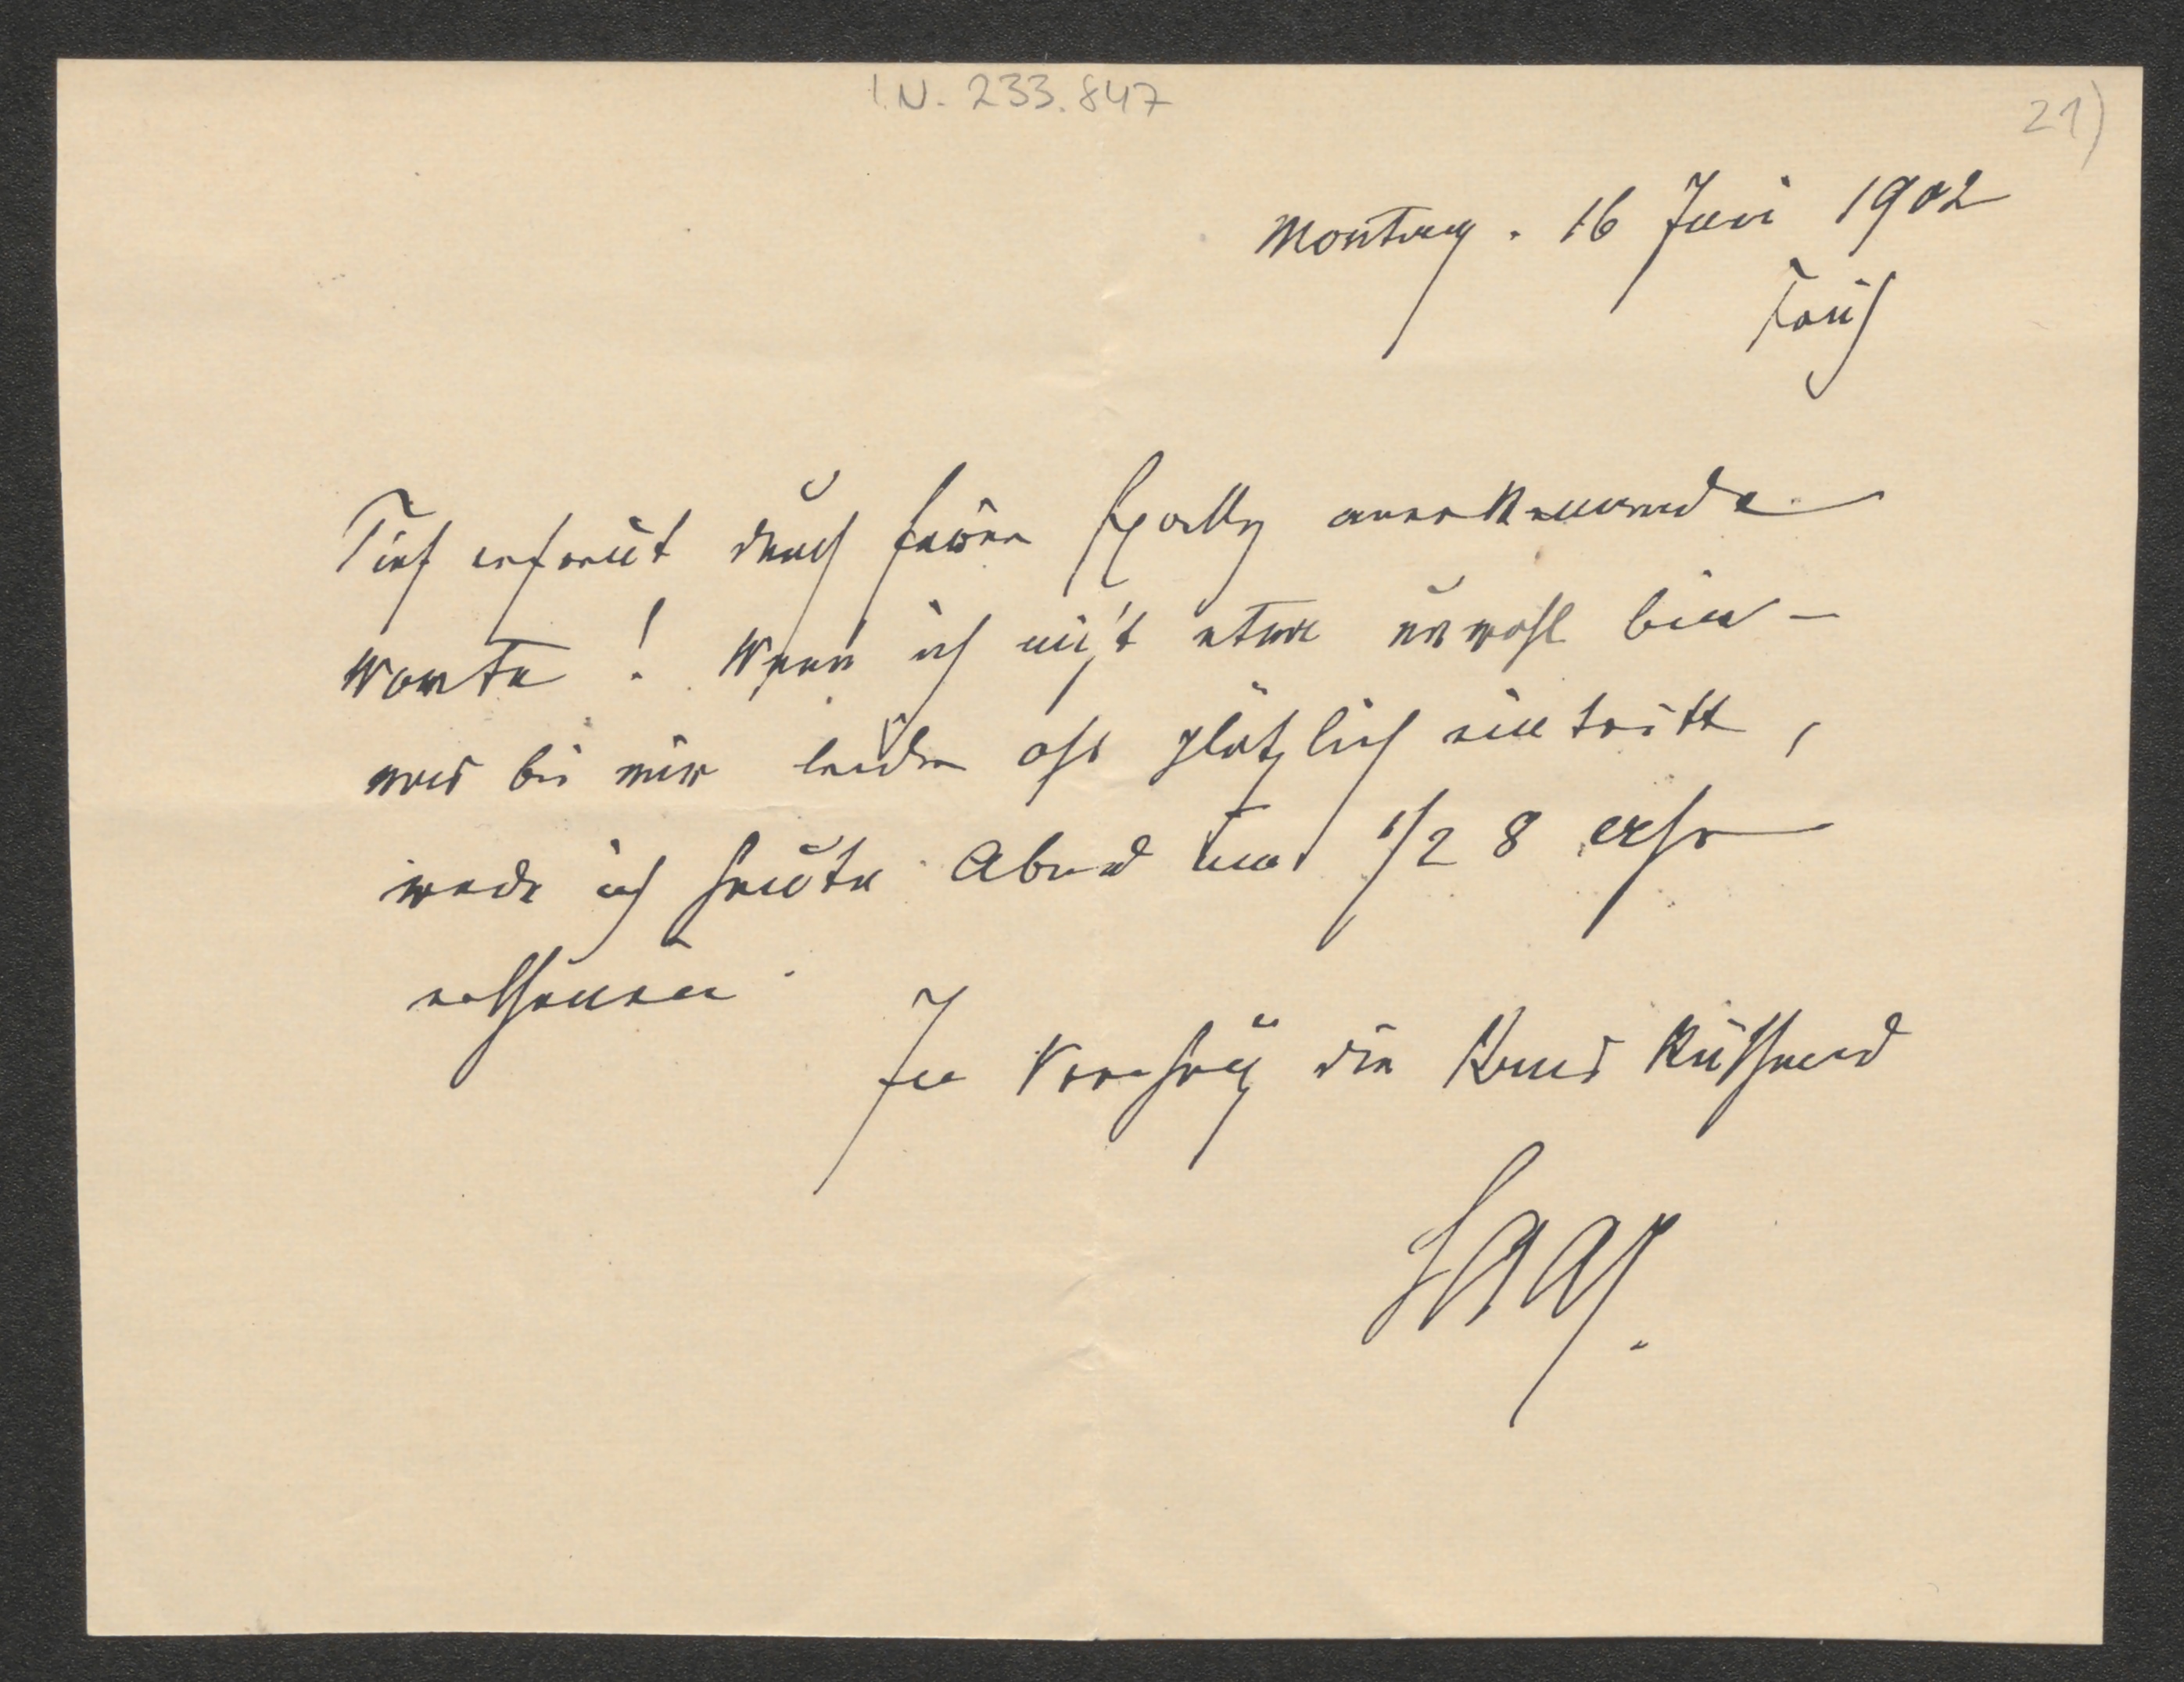 I.N. 233.847
21)
Montag. 16 Juni 1902
Früh
Tief erfreut durch Euerer Excellz anerkennende
Worte! Wenn ich nicht etwa unwohl bin –
was bei mir leider oft plötzlich eintritt,
werde ich heute Abend um 1/2 8 Uhr
erscheinen.
In Verehrung die Hand küssend
Saar.